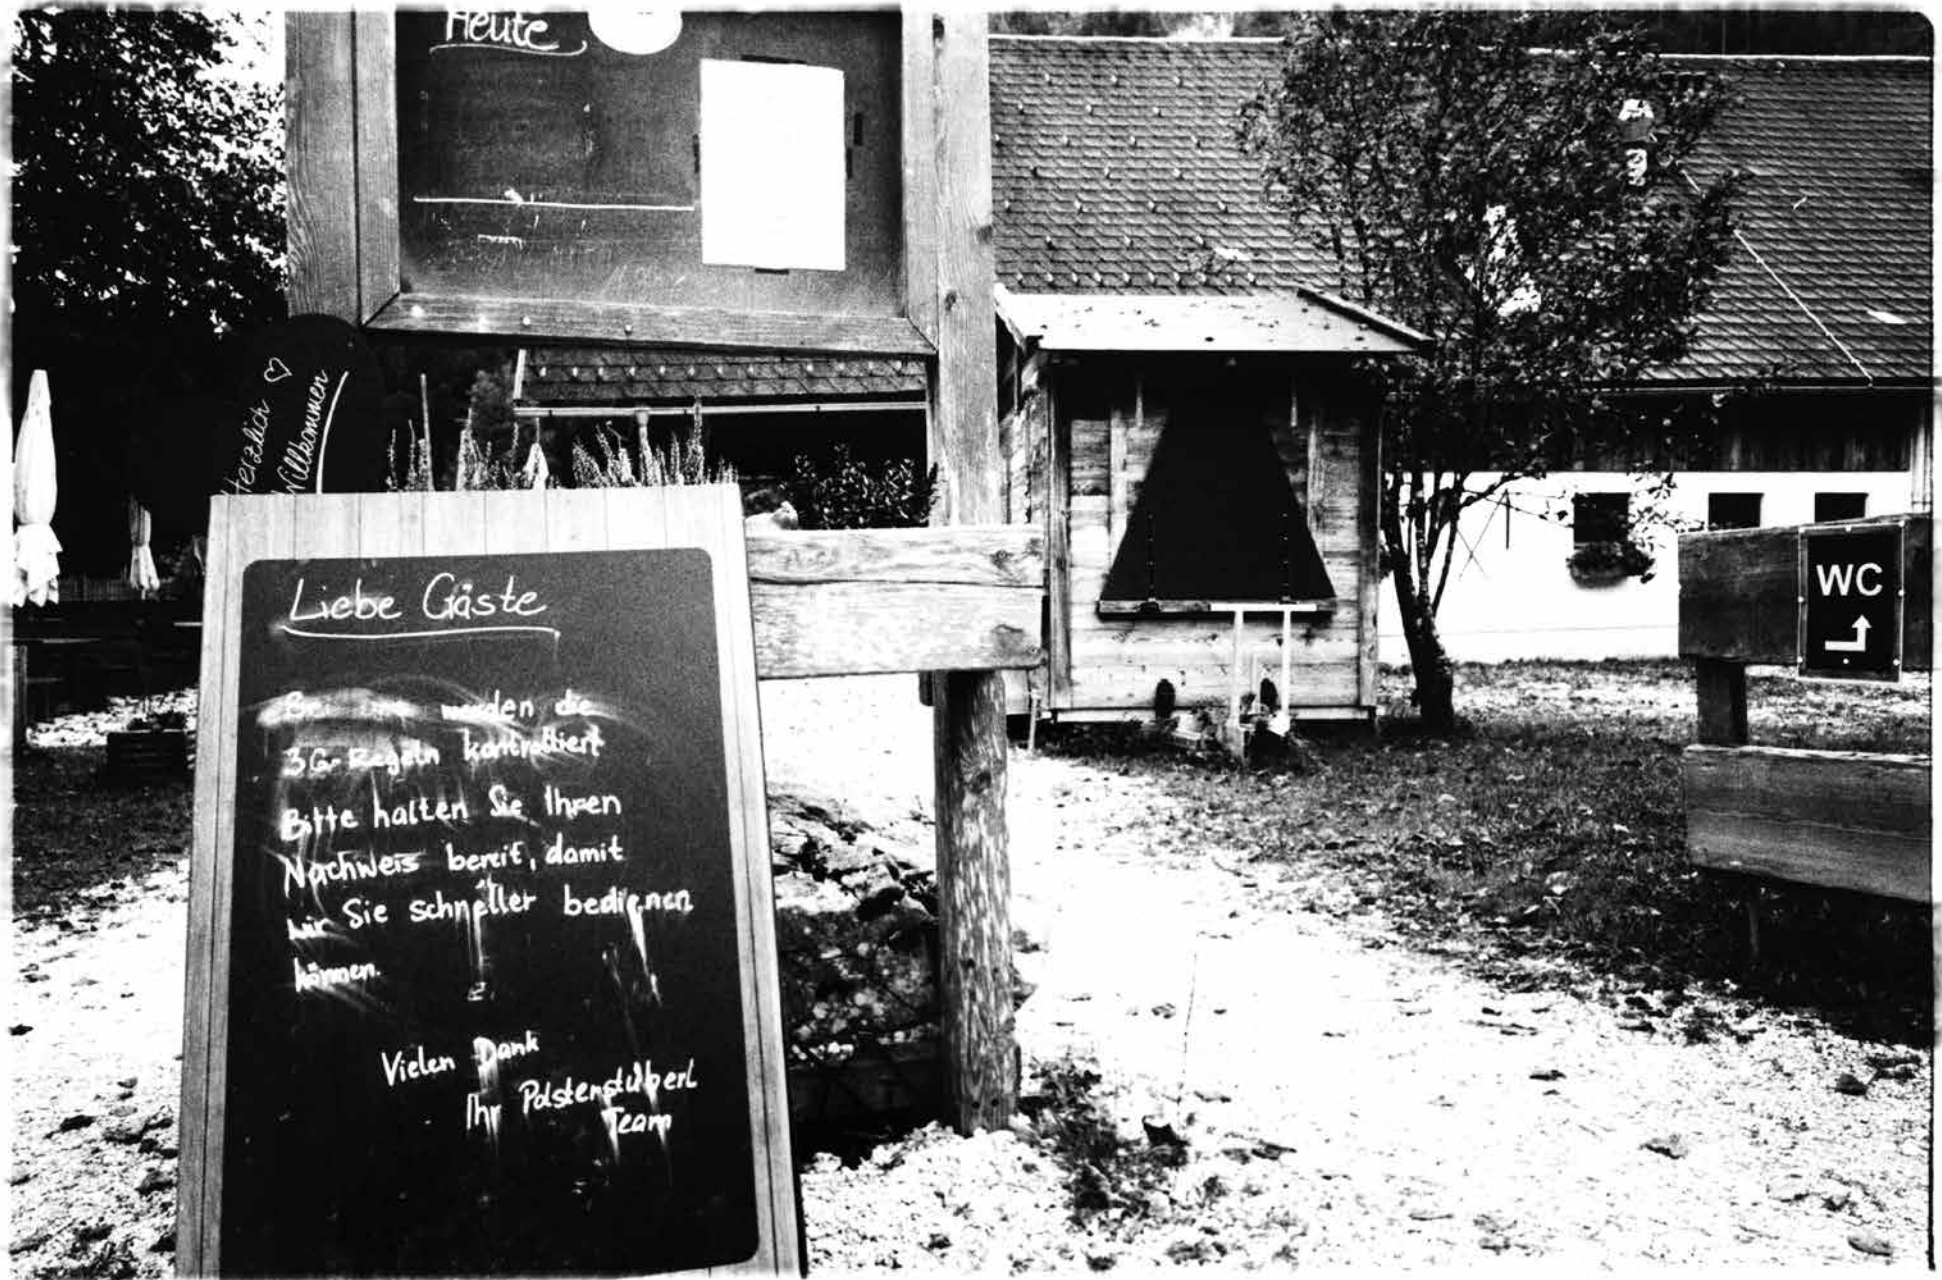 Heute
Herzlich
Willkommen
Liebe Gäste
Bei uns werden die
3G-Regeln kontrolliert
Bitte halten Sie Ihren
Nachweis bereit, damit
wir Sie schneller bedienen
können.
Vielen Dank
Ihr Polsterstüberl
Team
WC